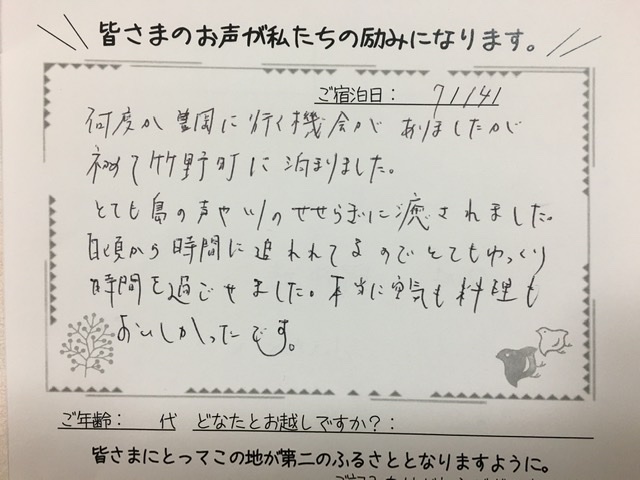 皆さまのお声が私たちの励みになります。
ご宿泊日:
何度か豊岡に行く機会がありましたが
初めて竹野町に泊まりました。
とても鳥の声や川のせせらぎに癒されました。
日頃から時間に追われてるのでとてもゆっくり
時間を過ごせました。本当に空気も料理も
おいしかったです。
ご年齢: 代 どなたとお越しですか?:
皆さまにとってこの地が第二のふるさととなりますように。